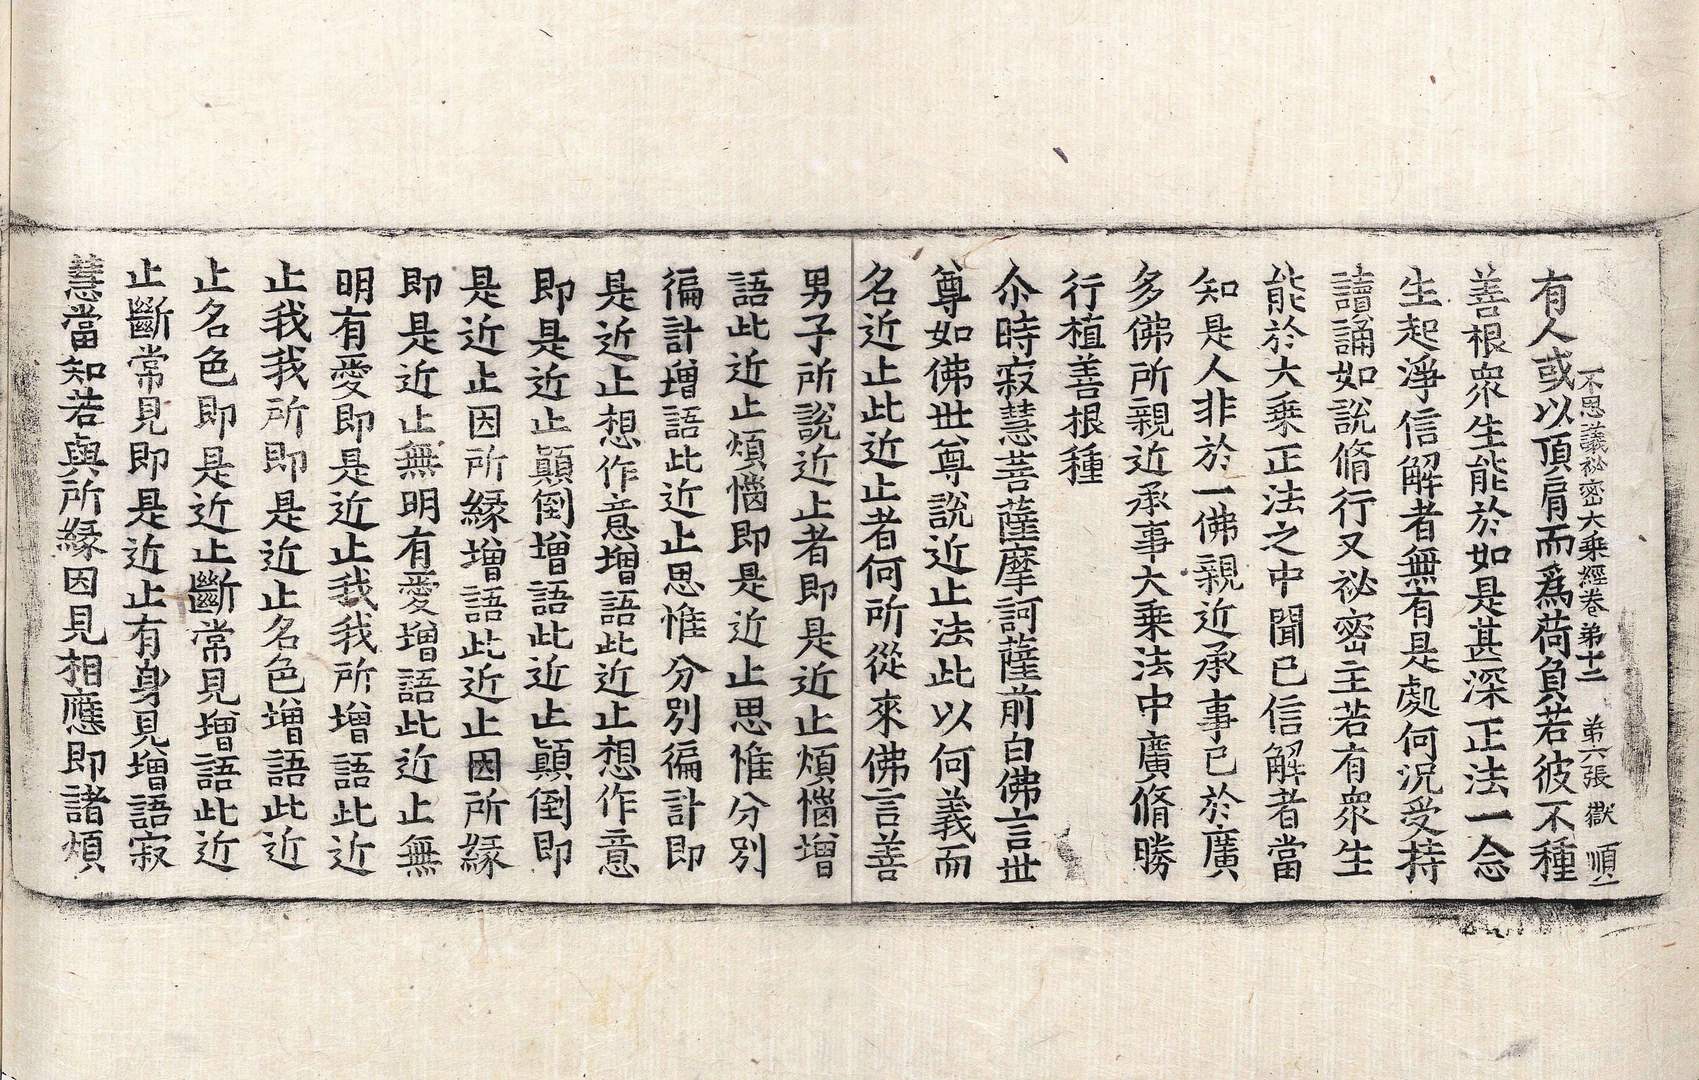 不思議祕密大乗經卷 第十二 第六張 獄 順一
有人或以頂肩而爲荷負若彼不種
善根衆生能於如是甚深正法一念
生起淨信解者無有是處何況受持
讀誦如說脩行又祕密主若有衆生
能於大乗正法之中聞已信解者當
知是人非於一佛親近承事已於廣
多佛所親近承事大乗法中廣脩勝
行植善根種
尒時寂慧菩薩摩訶薩前白佛言世
尊如佛世尊說近止法此以何義而
名近止此近止者何所從來佛言善
男子所說近止者即是近止煩惱增
語此近止煩惱即是近止思惟分別
徧計增語此近止思惟分別徧計即
是近止想作意增語此近止想作意
即是近止顚倒增語此近止顚倒即
是近止因所緣增語此近止因所緣
即是近止無明有愛增語此近止無
明有愛即是近止我我所增語此近
止我我所即是近止名色增語此近
止名色即是近止斷常見增語此近
止斷常見即是近止有身見增語寂
慧當知若與所緣因見相應即諸煩